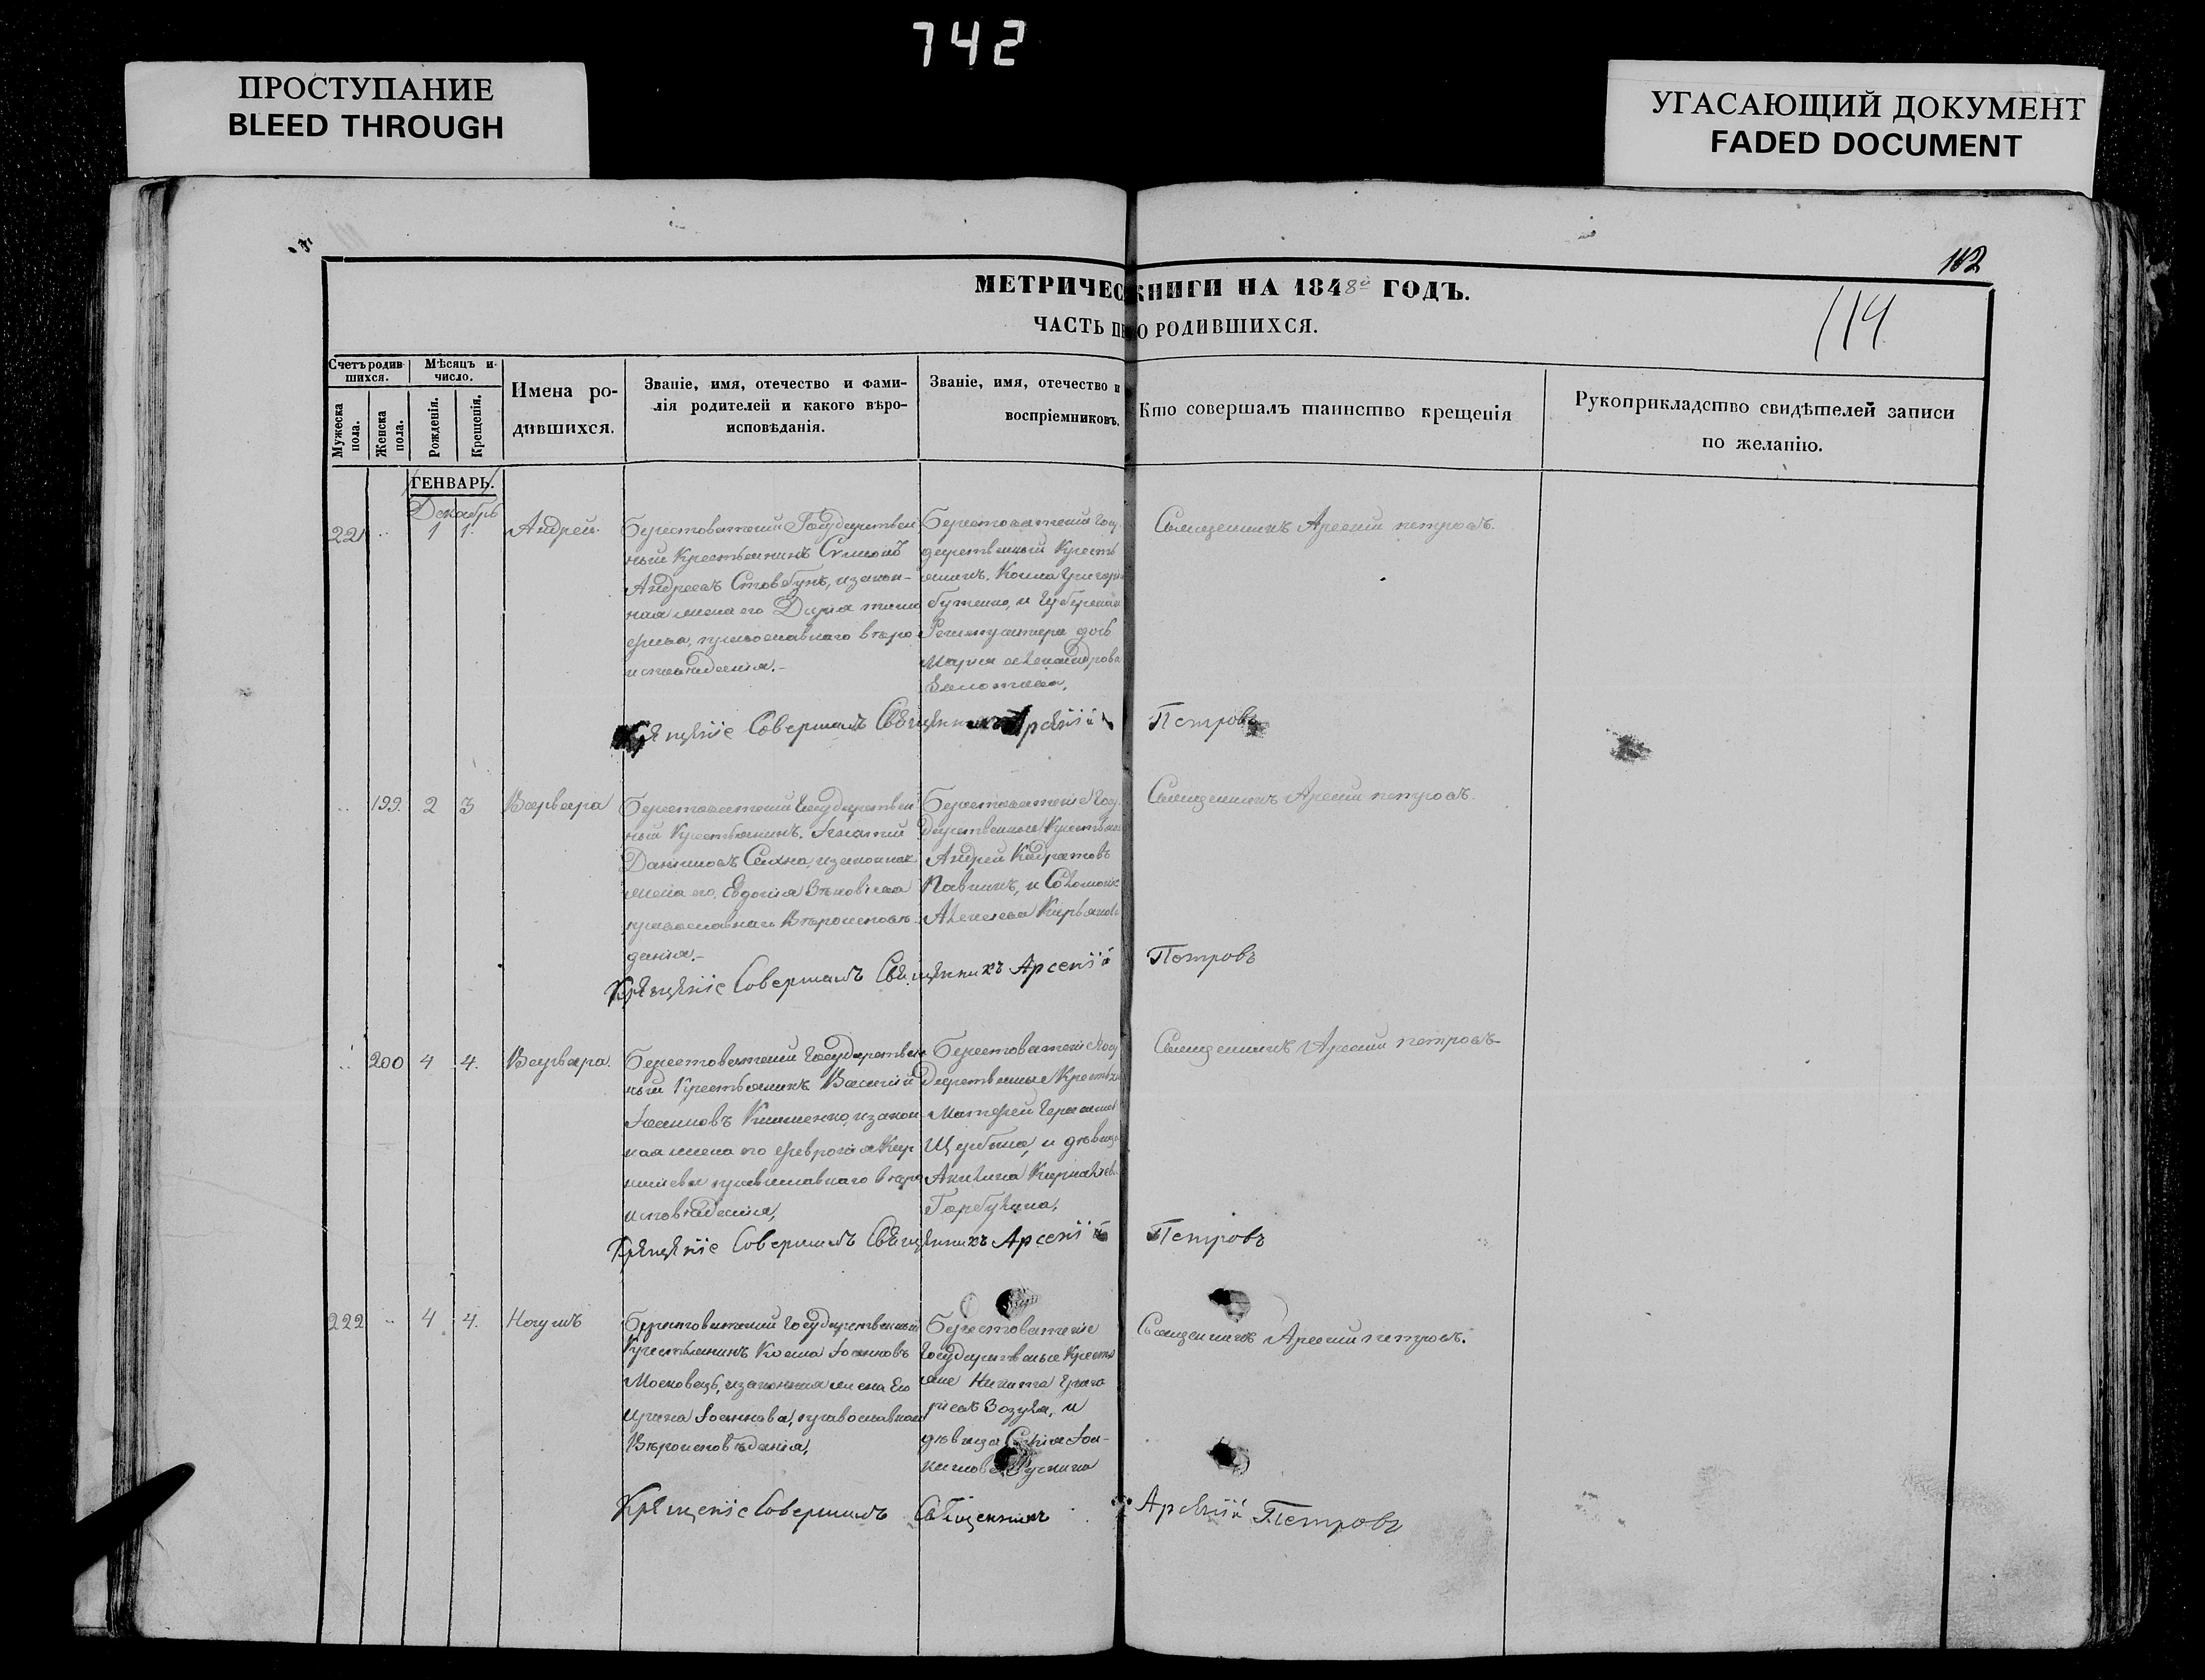 742
ПРОСТУПАНИЕ
BLEED THROUGH
УГАСАЮЩИЙ ДОКУМЕНТ
FADED DOCUMENT
112
114
МЕТРИЧЕС КНИГИ НА 1848й ГОДЪ.
ЧАСТЬ П О РОДИВШИХСЯ.
Счетъ родив-
шихся.
Мѣсяцъ и
число.
Мужеска пола.
Женска пола.
Рожденія.
Крещенія.
Имена ро-
дившихся.
Званіе, имя, отечество и фами-
лія родителей и какого вѣро-
исповѣданія.
Званіе, имя, отечество и
воспріемниковъ.
Кто совершалъ таинство крещенія
Рукоприкладство свидѣтелей записи
по желанію.
ГЕНВАРЬ.
Декабрь
221 1 1 Андрей
Берестоватский Государствен
ный Крестьянинъ Симеонъ
Андреевъ Стовбунъ, и закон-
ная жена его Дарія
православнаго вѣро
исповѣданія.
Берестоватский Госу
дарственный Кресть
янинъ Косма Григорі
бутенко, и
дочь
Марія Александрова
Священникъ Арсеній петровъ.
Крещеніе Совершалъ Священникъ Арсеній Петровъ
199 2 3 Варвара
Берестоватский Государствен
ный Крестьянинъ Игнатий
Даниловъ и законная
жена его Евдокія
православнаго Вѣроисповѣ
данія.
Берестоватскіе Госу
дарственные Крестьяне
Андрей Кодратовъ
Павликъ, и Соломонія
Алексеева Кирьянов
Священникъ Арсеній петровъ.
Крещеніе Совершалъ Священникъ Арсеній Петровъ
200 4 4. Варвара.
Берестоватский Государствен
ный Крестьянинъ Василий
Іоанновъ Клименко, и закон
ная жена его Февронія
православнаго Вѣро
исповѣданія,
Берестоватскіе Госу
дарственные Крестья
Матфей Герасимов
Щербина, и дѣвица
Акилина
Горбулина,
Священникъ Арсеній петровъ
Крещеніе Совершалъ Священникъ Арсеній Петровъ
222 4 4. Наумъ
Берестоватский Государственный
Крестьянинъ Косма Іоанновъ
Московецъ, и законная жена Его
Ирина Іоаннова, православнаго
Вѣроисповѣданія,
Берестоватскіе
Государственые Кресть
яне Никита Григо
риевъ Зозуля, и
дѣвица Софія Іоа-
Священникъ Арсеній петровъ.
Крещеніе Совершалъ Священникъ Арсеній Петровъ